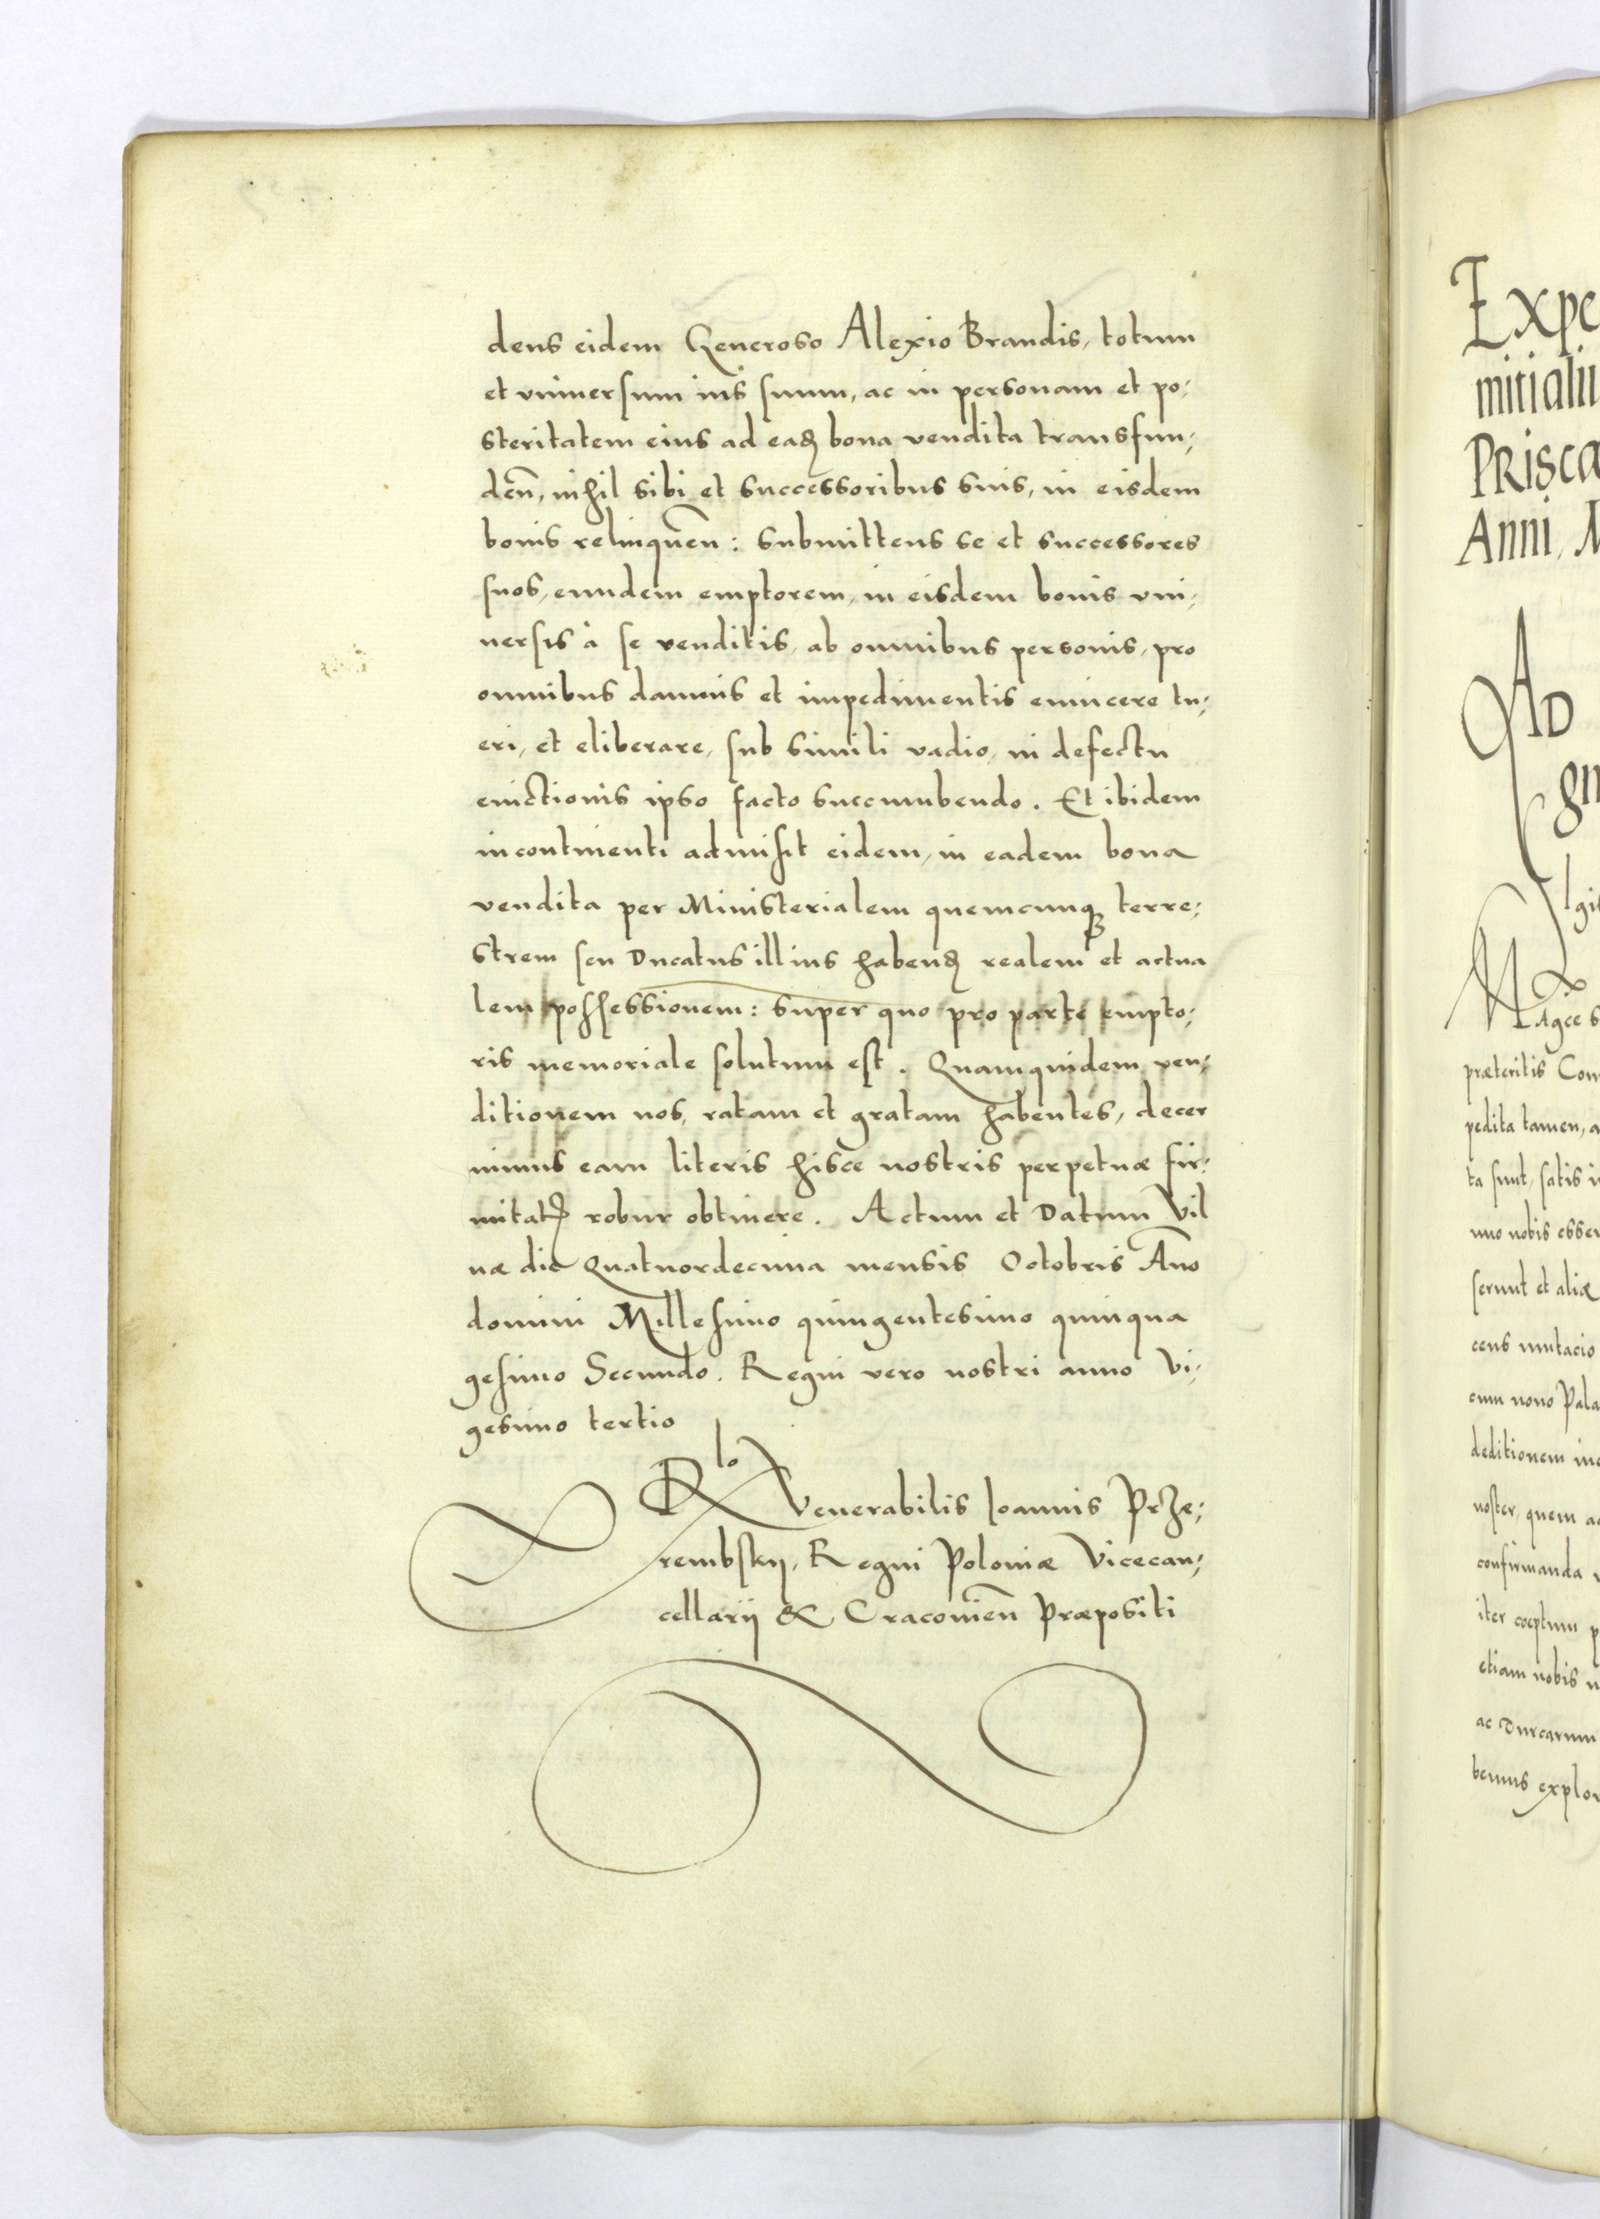 dens eidem Generoso Alexio Brandis, totum
et vniuersum ius suum, ac in personam et po-
steritatem eius ad eadem bona vendita transfun-
den̄, nihil sibi et successoribus suis, in eisdem
bonis relinquen̄: submittens se et successores
suos, eundem emptorem, in eisdem bonis vni-
uersis à se venditis, ab omnibus personis, pro
omnibus damnis et impedimentis euincere tu-
eri, et eliberare, sub simili vadio, in defectu
euictionis ipso facto succumbendo. Et ibidem
incontinenti admisit eidem, in eadem bona
vendita per Ministerialem quemcunqꝫ terre-
strem seu Ducatus illius habendꝫ realem et actua
lem possessionem: super quo pro parte empto-
ris memoriale solutum est. Quamquidem ven-
ditionem nos, ratam et gratam habentes, decer
nimus eam literis hisce nostris perpetuæ fir-
mitatꝭ robur obtinere. Actum et Datum Vil
næ die Quatuordecima mensis Octobris An̄o
domini Millesimo quingentesimo quinqua
gesimo Secundo. Regni vero nostri anno Vi-
gesimo tertio
Rlo Venerabilis Ioannis Prze-
rembskij, Regni Poloniæ Vicecan-
cellarij & Cracouien̄ Præpositi
Expe
mitialiu
PRisca
Anni, M
AD
gn
Mågce s
præteritis Com
pedita tamen, a
ta sunt, satis i
mo nobis esse
serunt et aliæ
cens mutacio
cum nono Pala
deditionem in
noster, quem a
confirmanda
iter coeptum p
etiam nobis n
ac Turcarum
bemus explor